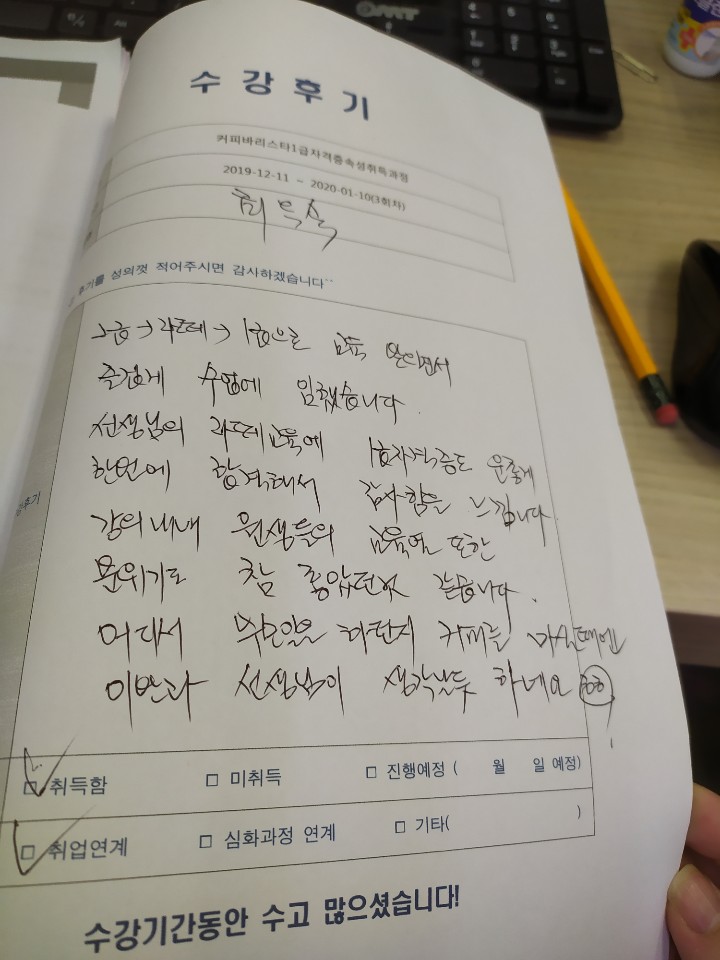 수강후기
커피바리스타1급자격증속성취득과정
2019-12-11 ~ 2020-01-10(3회차)
후기를 성의껏 적어주시면 감사하겠습니다^^
2급 → 라떼 → 1급으로 교육 받으면서
즐겁게 수업에 임했습니다.
선생님의 라떼교육에 1급자격증도 운좋게
한번에 합격해서 감사함을 느낍니다.
강의내내 원생들의 교육열 또한
분위기도 참 좋았던것 같습니다.
어디서 무슨일을 하던지 커피를 마실때에는
이반과 선생님이 생각날듯 하네요 ㅎㅎ
후기
□ 취득함 □ 미취득 □ 진행예정 ( 월 일 예정)
□ 취업연계 □ 심화과정 연계 □ 기타( )
수강기간동안 수고 많으셨습니다!